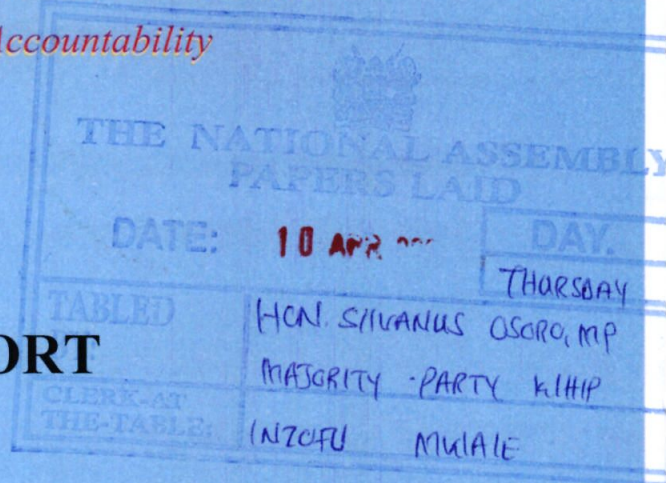 Accountability
THE NATIONAL ASSEMBLY
PAPERS LAID
DATE: 10 APR
DAY.
THURSDAY
TABLED
HON. SILVANUS OSORO, MP
ORT
MAJORITY PARTY WHIP
CLERK-AT
THE-TABLE:
INZOFU MWALE